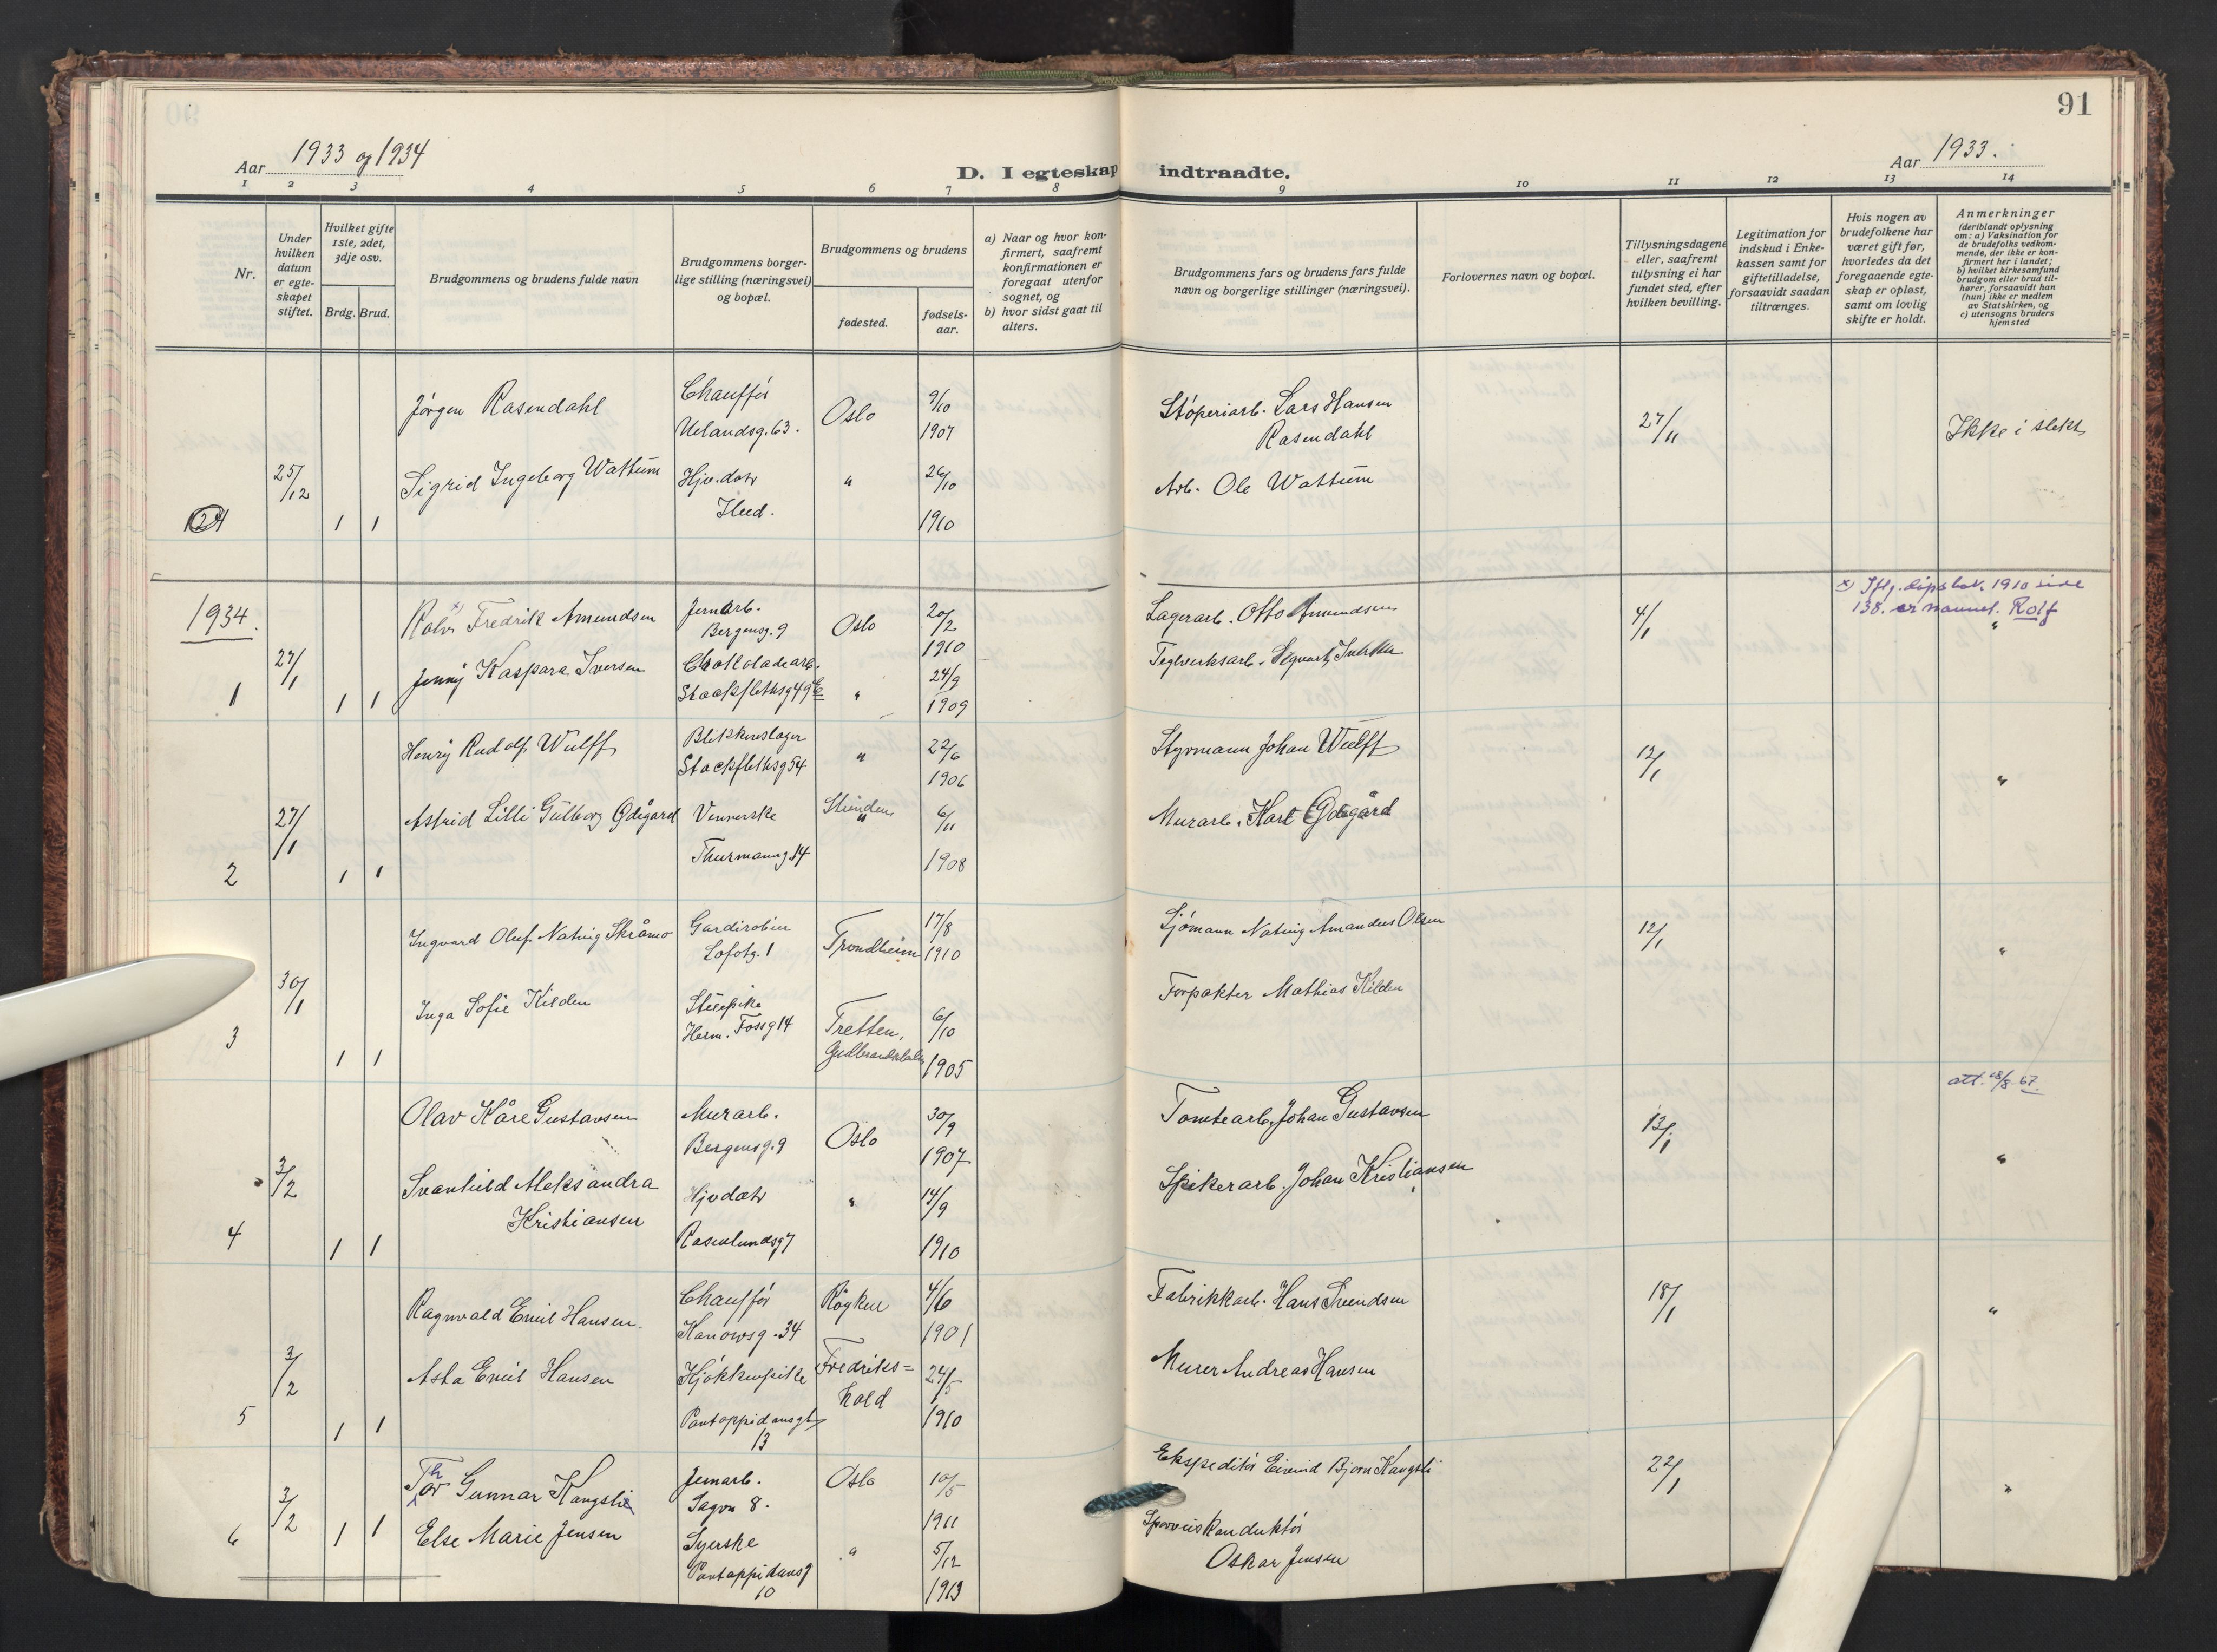 91
Aar 1933 og 1934
D. I egteskap indtraadte.
Aar 1933.
1 2 3 4 5 6 7 8 9 10 11 12 13 14
Nr.
Under hvilken datum er egteskapet stiftet.
Hvilket gifte 1ste, 2det, 3dje osv.
Brdg. Brud.
Brudgommens og brudens fulde navn
Brudgommens borgerlige stilling (næringsvei) og bopæl.
Brudgommens og brudens
fødested.
fødselsaar.
a) Naar og hvor konfirmert, saafremt konfirmationen er foregaat utenfor sognet, og
b) hvor sidst gaat til alters.
Brudgommens fars og brudens fars fulde navn og borgerlige stillinger (næringsvei).
Forlovernes navn og bopæl.
Tillysningsdagene eller, saafremt tillysning ei har fundet sted, efter hvilken bevilling.
Legitimation for indskud i Enkekassen samt for giftetilladelse, forsaavidt saadan tiltrænges.
Hvis nogen av brudefolkene har været gift før, hvorledes da det foregaaende egteskap er opløst, samt om lovlig skifte er holdt.
Anmerkninger (deriblandt oplysning om: a) Vaksination for de brudefolks vedkommende, der ikke er konfirmert her i landet; b) hvilket kirkesamfund brudgom eller brud tilhører, forsaavidt han (hun) ikke er medlem av Statskirken, og c) utensogns bruders hjemsted
Jørgen Rasendahl Chauffør Uelandsg. 63. Oslo 9/10 1907 Støperiarb. Lars Hansen Rasendahl 27/11 Ikke i slekt
124 25/12 1 1 Sigrid Ingeborg Wattum Hjv. datr Ilud. " 26/10 1910 Arb. Ole Wattum
1934.
Ralv x) Fredrik Amundsen Jernarb. Bergensg. 9 Oslo 20/2 1910 Lagerarb. Otto Amundsen 4/1 x) Iflg. dåpsbok. 1910 side 138. er navnet. Rolf "
1 27/1 1 1 Jenny Kaspara Iversen Chokoladearb. Stockflethsg 49 " 24/9 1909 Teglverksarb. Iversen
Henry Rudolf Wulff Blikkenslager Stockflethsg 54 " 22/6 1906 Styrmann Johan Wulff 12/1 "
2 27/1 1 1 Astrid Lilli Gulborg Ødigård Ververske Thurmannsg. 14 6/11 1908 Murarb. Karl Ødegård
Ingvard Oluf Natvig Skråmo Lofotg. 1 Trondheim 17/8 1910 Sjømann Natvig Amandus Olsen 12/1 "
3 30/1 1 1 Inga Sofie Kilden Stuepike Herm. Fossg 14 Tretten, Gudbrandsdalen 6/10 1905 Forpakter Mathias Kilden
att. 18/8-67.
Olav Kåre Gustavsen Murarb. Bergensg. 9 Oslo 30/9 1907 Tomtearb. Johan Gustavsen 13/1 "
4 3/2 1 1 Svanhild Aleksandra Kristiansen Hjv datr Rasenlundsg 7 " 14/9 1910 Spikerarb. Johan Kristiansen
Ragnvald Emil Hansen. Chauffør Kanowsg. 34 Røyken 4/6 1901 Fabrikkarb. Hans Svendsen 18/1 "
5 3/2 1 1 Asta Emil Hansen Kjøkkenpike Pontoppidansgt 13 Fredrikshald 24/5 1910 Murer Andreas Hansen
Thor Gunnar Kangsli Jernarb. Sagvn 8. Oslo 10/5 1911 Ekspeditør Eivind Bjorn Kangsli 22/1 "
6 3/2 1 1 Else Marie Jensen Syerske Pontoppidansg 10 " 5/12 1913 Sporveiskonduktør Oskar Jensen